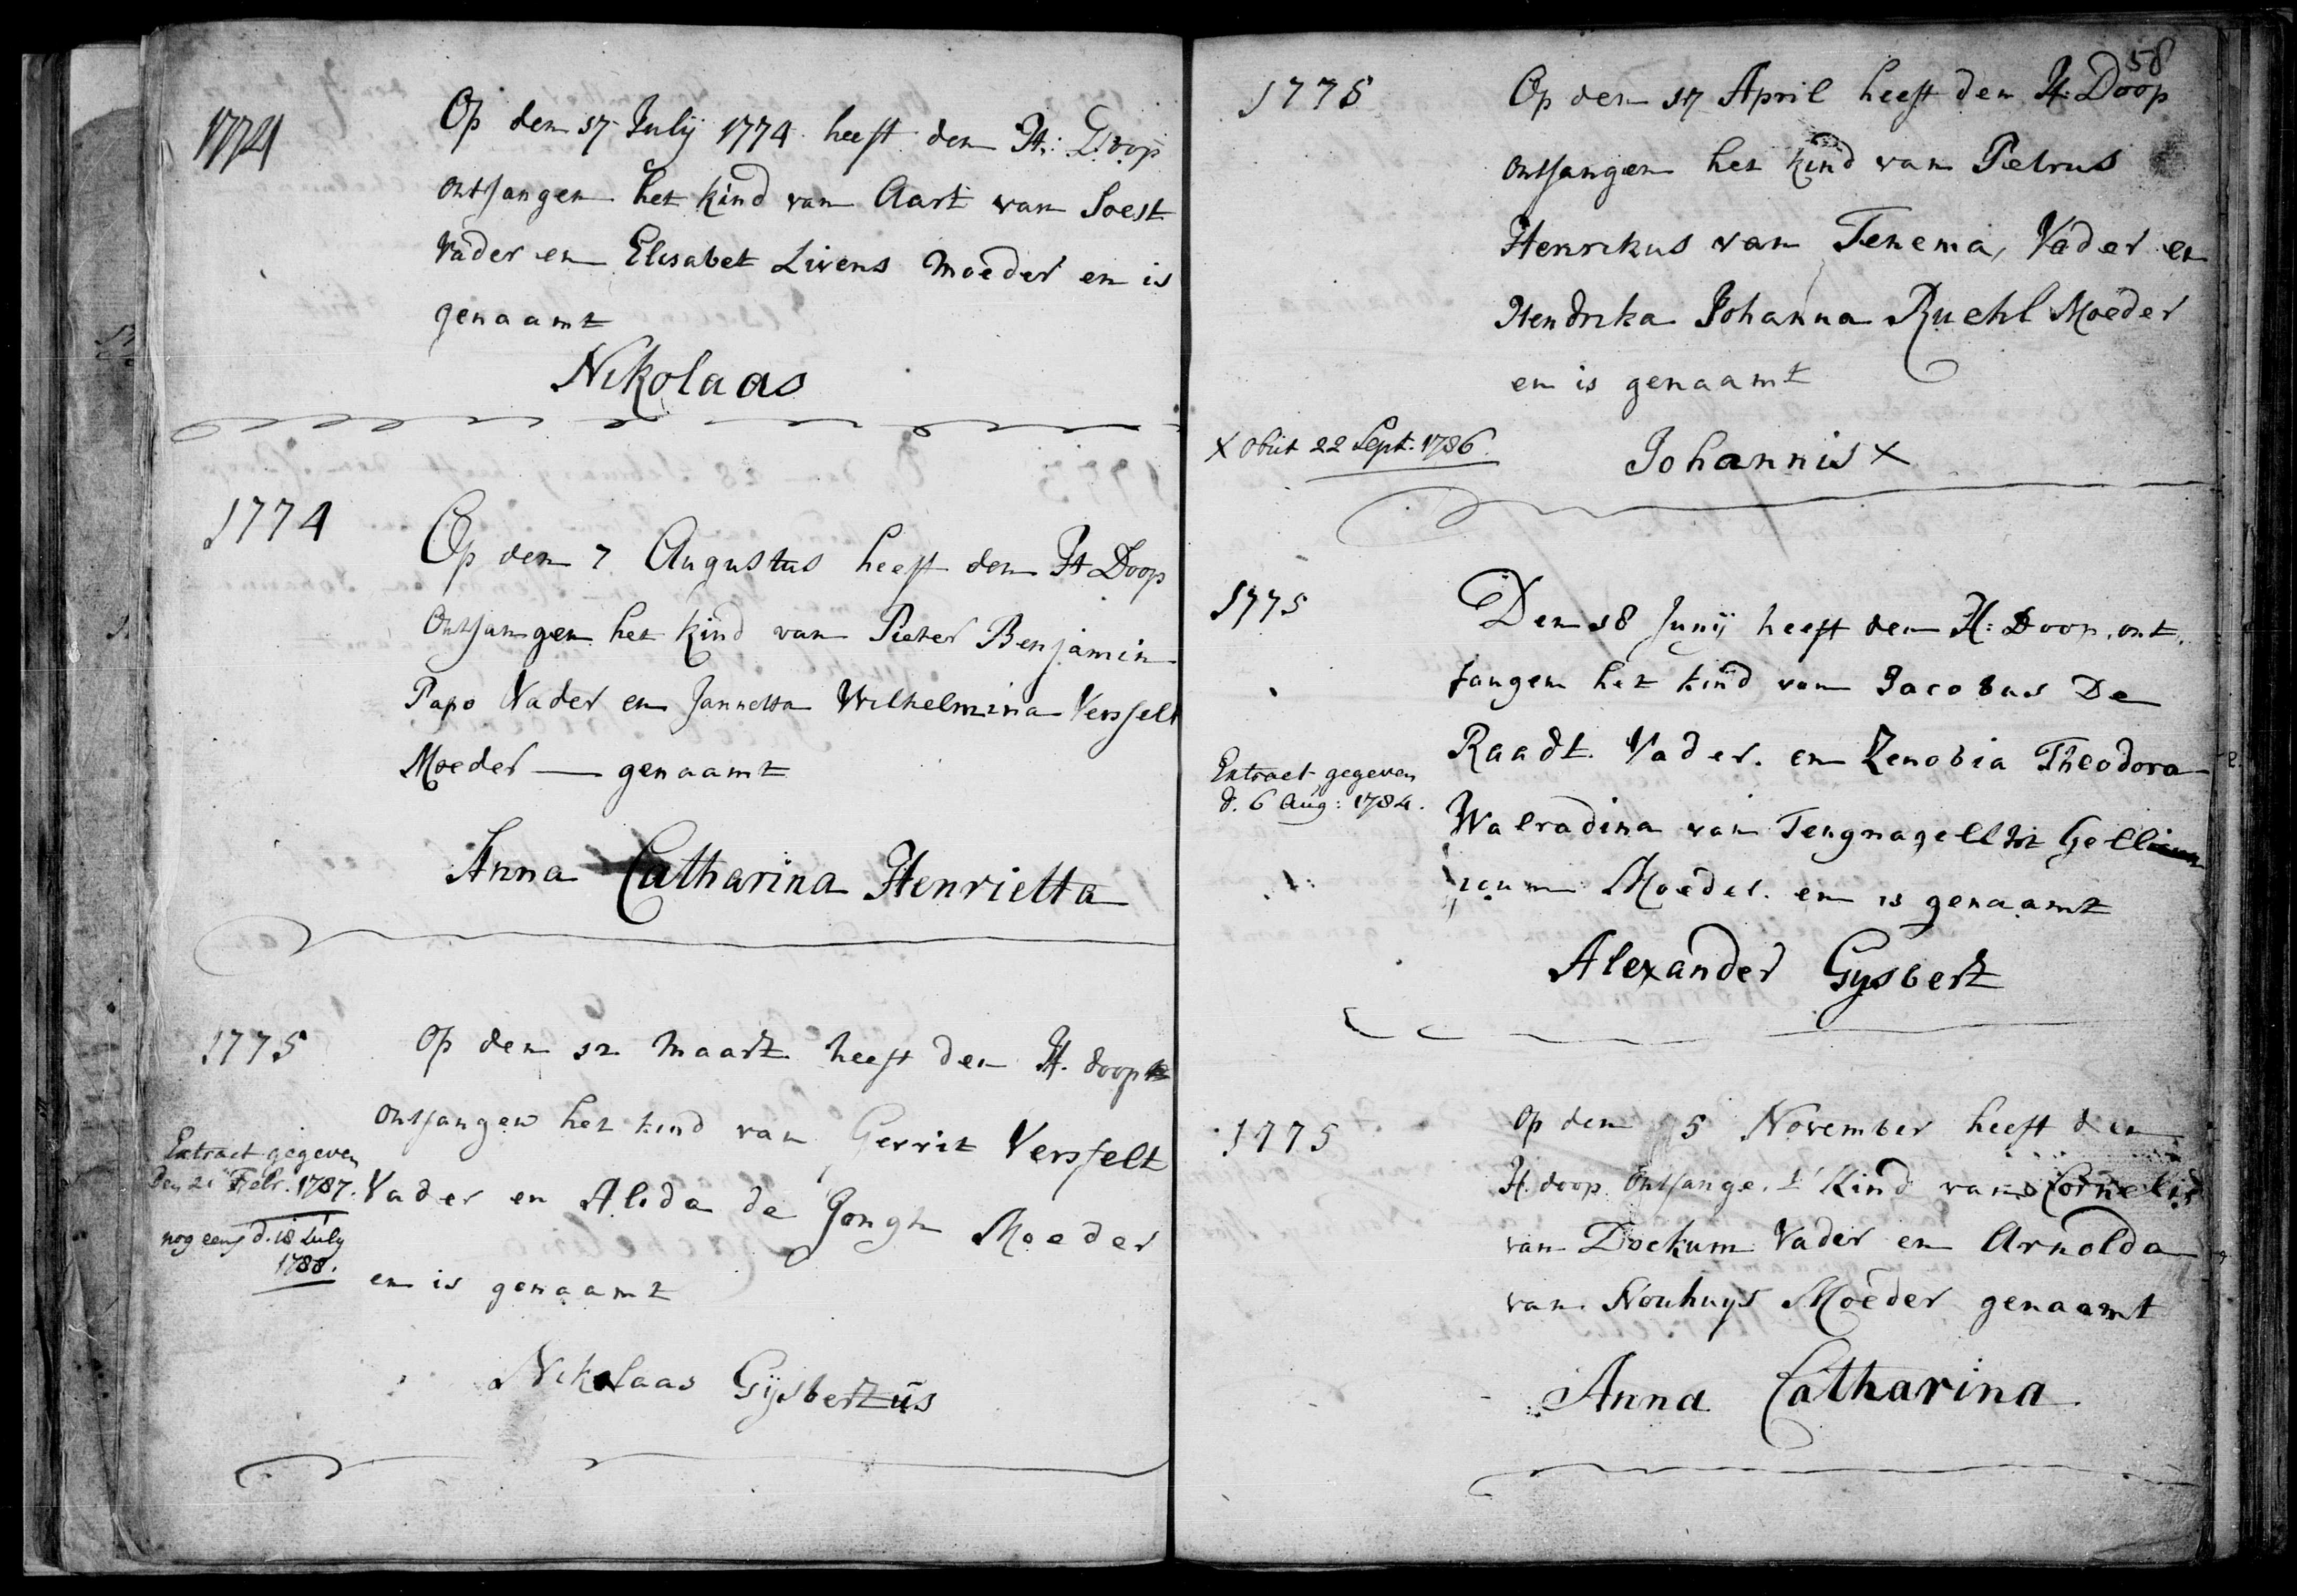 1774
Op den 17 Julij 1774 heeft den H: Doop
ontfangen het kind van Aart van Soest
Vader en Elisabet Livens Moeder en is
genaamt
Nikolaas
1774
Op den 7 Augustus heeft den H Doop
ontfangen het kind van Pieter Benjamin
Papo Vader en Jannetta Wilhelmina Versfelt
Moeder — genaamt
Anna Catharina Henrietta
1775
Op den 12 Maart heeft den H. doop
ontfangen het kind van Gerrit Versfelt
Vader en Alida de Jongh Moeder
en is genaamt
Extract gegeven
den 21 Febr. 1787.
nog eens d. 18 July
1788.
Nikolaas Gijsbertus
58
1775
Op den 17 April heeft den H: Doop
ontfangen het kind van Petrus
Henrikus van Tenema, Vader en
Hendrika Johanna Ruehl Moeder
en is genaamt
X obiit 22 Sept. 1786.
Johannis X
1775
Den 18 Junij heeft den H: Doop ont.
fangen het kind van Jacobus De
Raadt. Vader. en Zenobia Theodora
Extract gegeven
d. 6 Aug: 1784.
Walradina van Tengnagell tot Gelli
Moeder. en is genaamt
Alexander Gysbert
1775
Op den 5 November heeft den
H. doop ontfange. t' Kind van Cornelis
van Dockum Vader en Arnolda
van Nouhuys Moeder genaamt
Anna Catharina